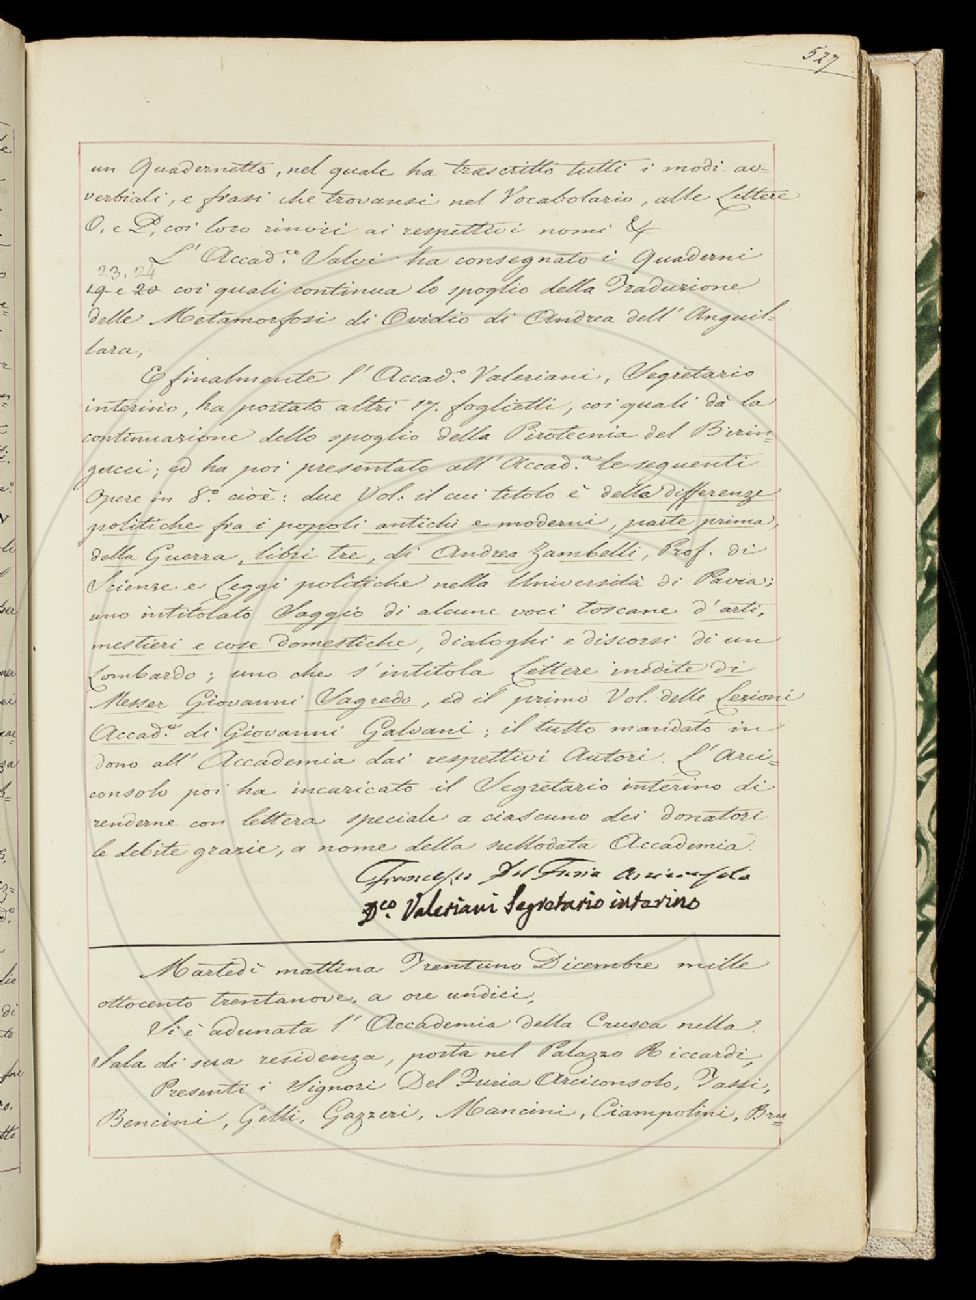 527
un Quadernetto, nel quale ha trascritto tutti i modi av-
verbiali, e frasi che trovansi nel Vocabolario, alle Lettere
O. e P. coi loro rinvii ai respettivi nomi &
L'Accad.co Salvi ha consegnato i Quaderni
23. 24
19 e 20 coi quali continua lo spoglio della Traduzione
delle Metamorfosi di Ovidio di Andrea dell'Anguil-
lara,
E finalmente l'Accad.o Valeriani, Segretario
interino, ha portato altri 17. foglietti, coi quali dà la
continuazione dello spoglio della Pirotecnia del Birin=
gucci; ed ha poi presentato all'Accad.a le seguenti
opere in 8.o cioè: due Vol. il cui titolo è della differenze
politiche fra i popoli antichi e moderni, parte prima,
della Guerra, libri tre, di Andrea Zambelli, Prof. di
Scienze e Leggi politiche nella Università di Pavia;
uno intitolato Saggio di alcune voci toscane d'arti,
mestieri e cose domestiche, dialoghi e discorsi di un
Lombardo; uno che s'intitola Lettere inedite di
Messer Giovanni Sagredo, ed il primo Vol. delle Lezioni
Accad.e di Giovanni Galvani; il tutto mandato in
dono all'Accademia dai respettivi Autori. L'Arci=
consolo poi ha incaricato il Segretario interino di
renderne con lettera speciale a ciascuno dei donatori
le debite grazie, a nome della sullodata Accademia.
Francesco Del Furia Arciconsolo
D.co Valeriani Segretario interino
Martedì mattina Trentuno Dicembre mille
ottocento trentanove, a ore undici,
Si è adunata l'Accademia della Crusca nella
Sala di sua residenza, posta nel Palazzo Riccardi,
Presenti i Signori Del Furia Arciconsolo, Tassi,
Bencini, Gelli, Gazzeri, Mancini, Ciampolini, Bru=